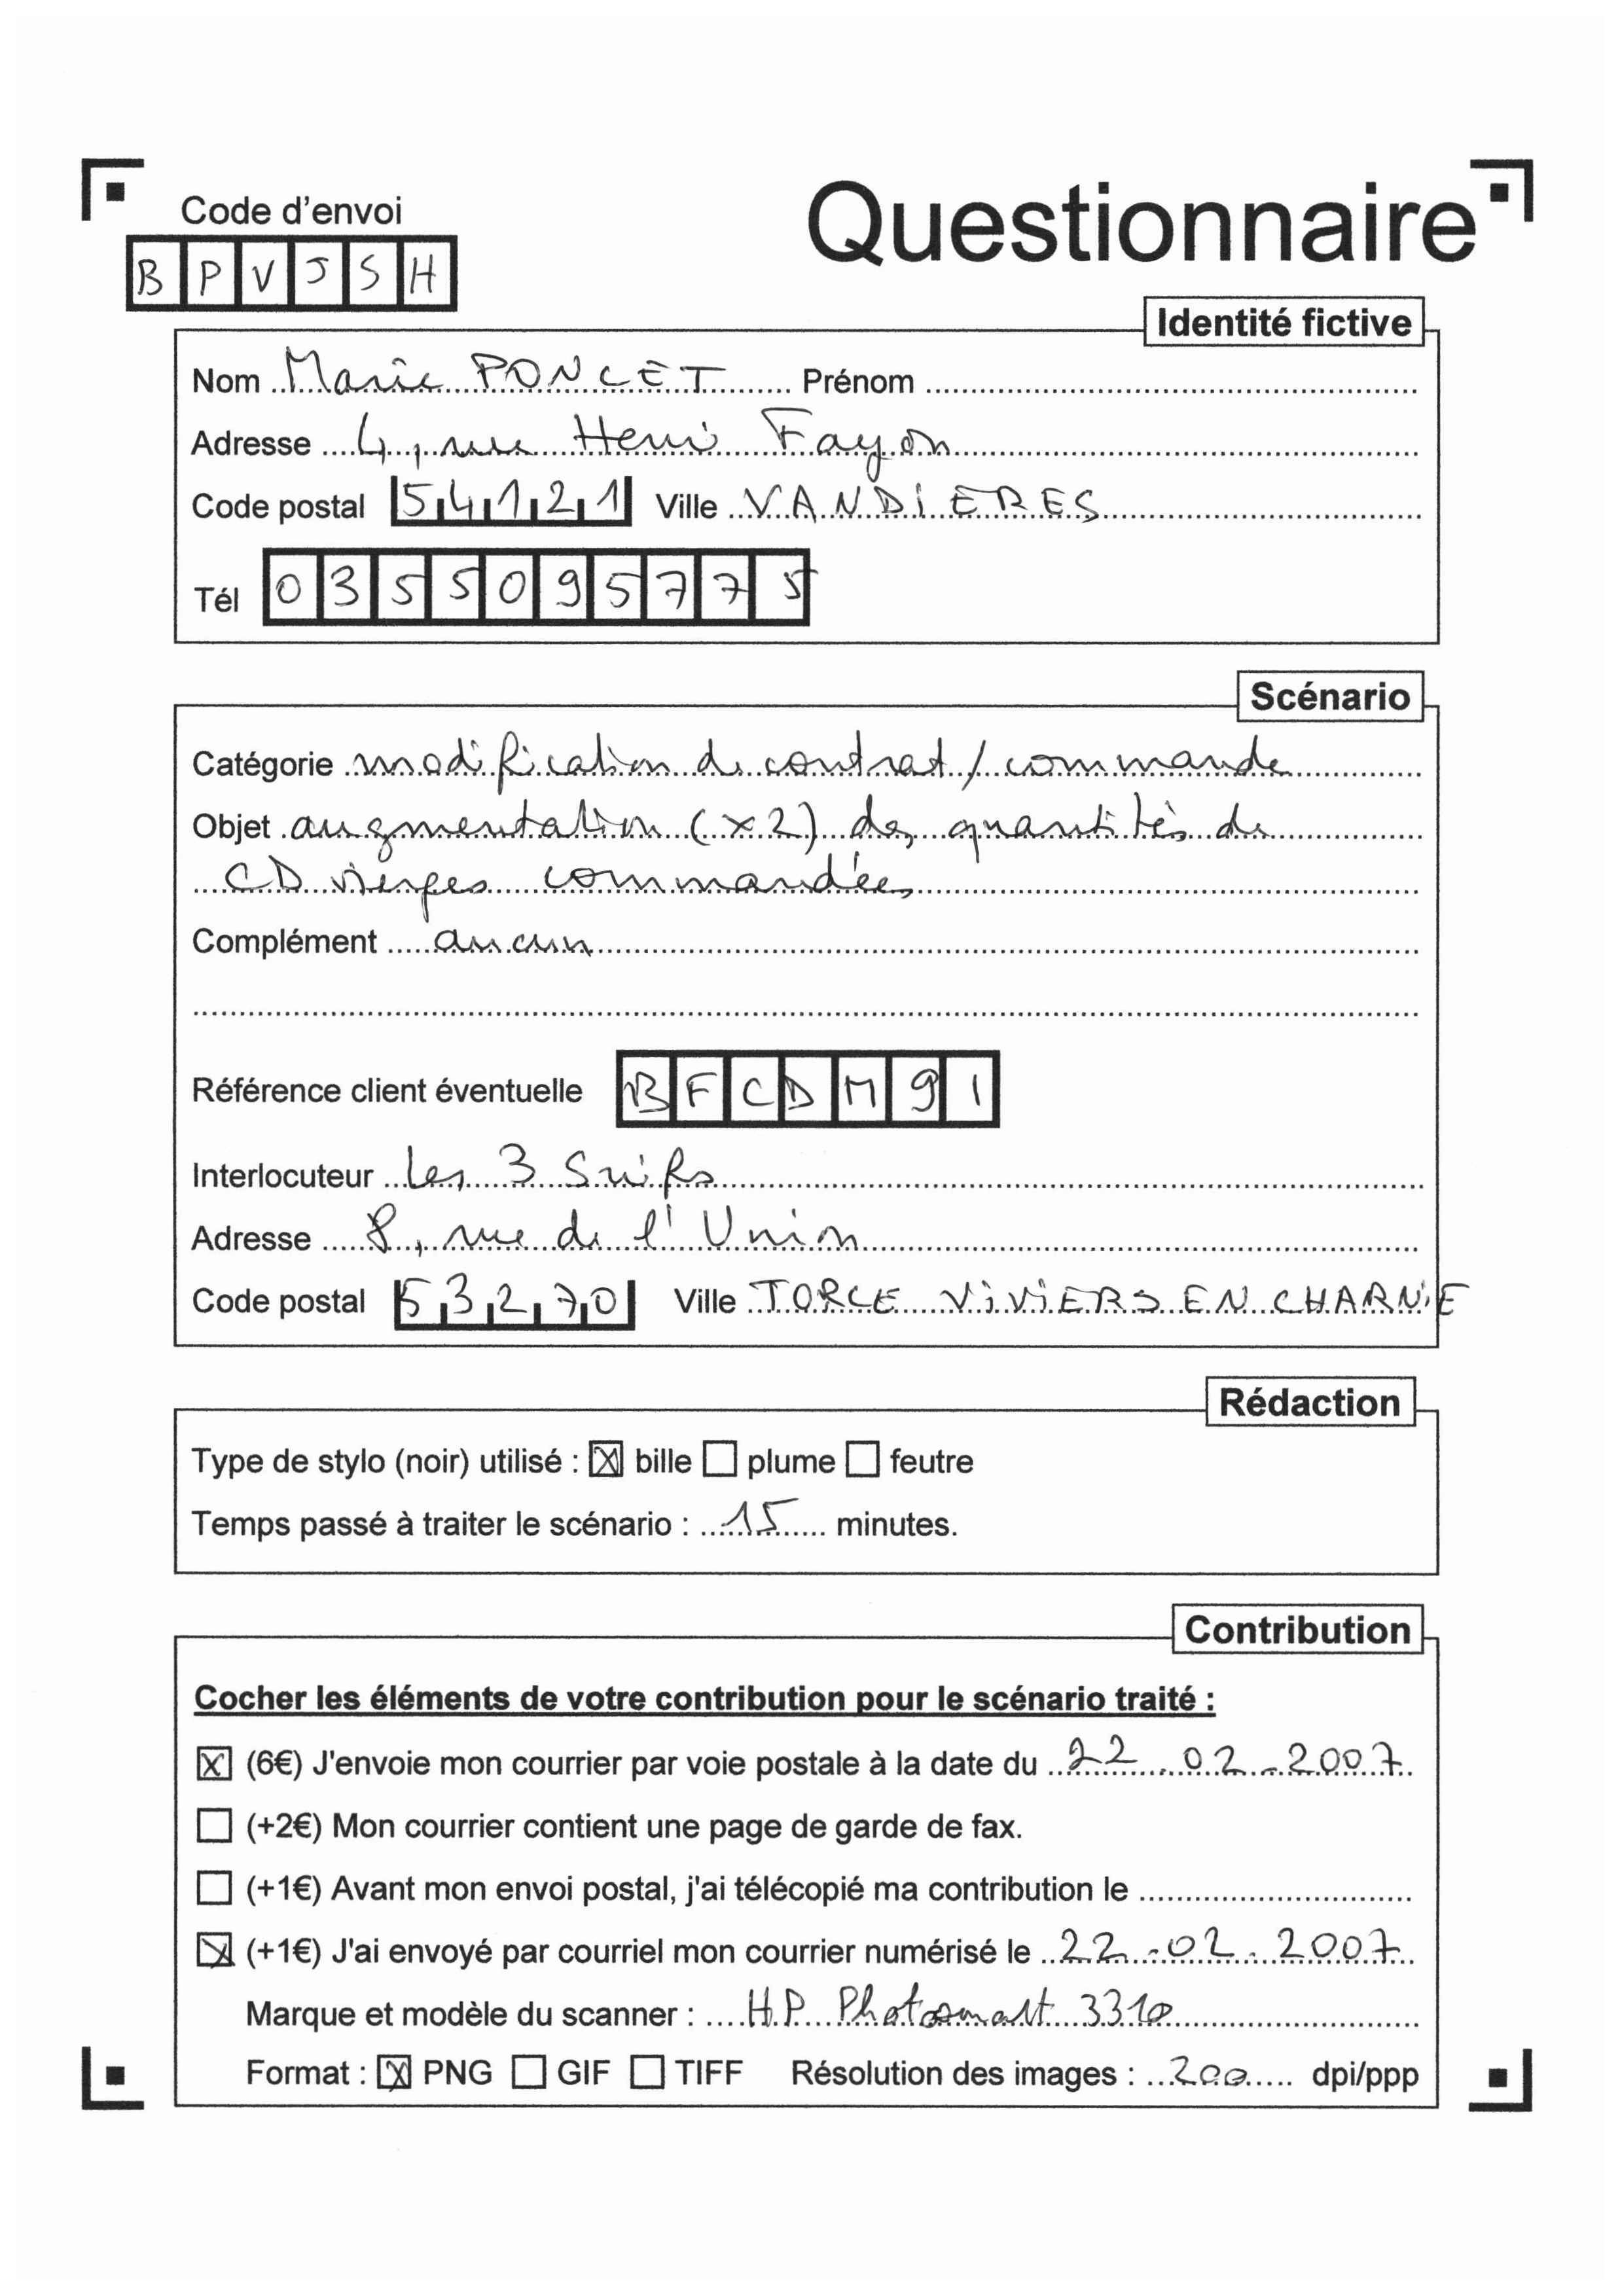 Code d'envoi
Questionnaire
B P V J S H
Identité fictive
Nom Marie PONCET Prénom
Adresse 4, rue Henri Fayon
Code postal 54121 Ville VANDIERES
Tél 0355095775
Scénario
Catégorie modification de contrat / commande
Objet augmentation (x2) des quantités de
CD vierges commandées
Complément aucun
Référence client éventuelle B F C D M 9 1
Interlocuteur Les 3 Suifs
Adresse 8, rue de l'Union
Code postal 53270 Ville TORCE VIVIERS EN CHARNIE
Rédaction
Type de stylo (noir) utilisé : bille plume feutre
Temps passé à traiter le scénario : 15 minutes.
Contribution
Cocher les éléments de votre contribution pour le scénario traité :
(6€) J'envoie mon courrier par voie postale à la date du 22.02.2007
(+2€) Mon courrier contient une page de garde de fax.
(+1€) Avant mon envoi postal, j'ai télécopié ma contribution le
(+1€) J'ai envoyé par courriel mon courrier numérisé le 22.02.2007
Marque et modèle du scanner : HP Photosmart 3310
Format : PNG GIF TIFF Résolution des images : 200 dpi/ppp